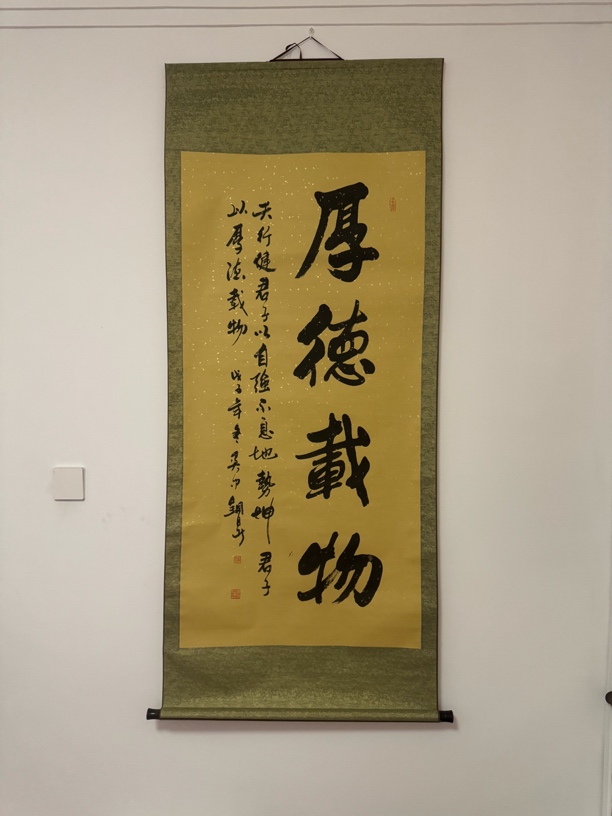 厚德載物
天行健君子以自強不息地勢坤君子
以厚德載物
戊子年冬吴